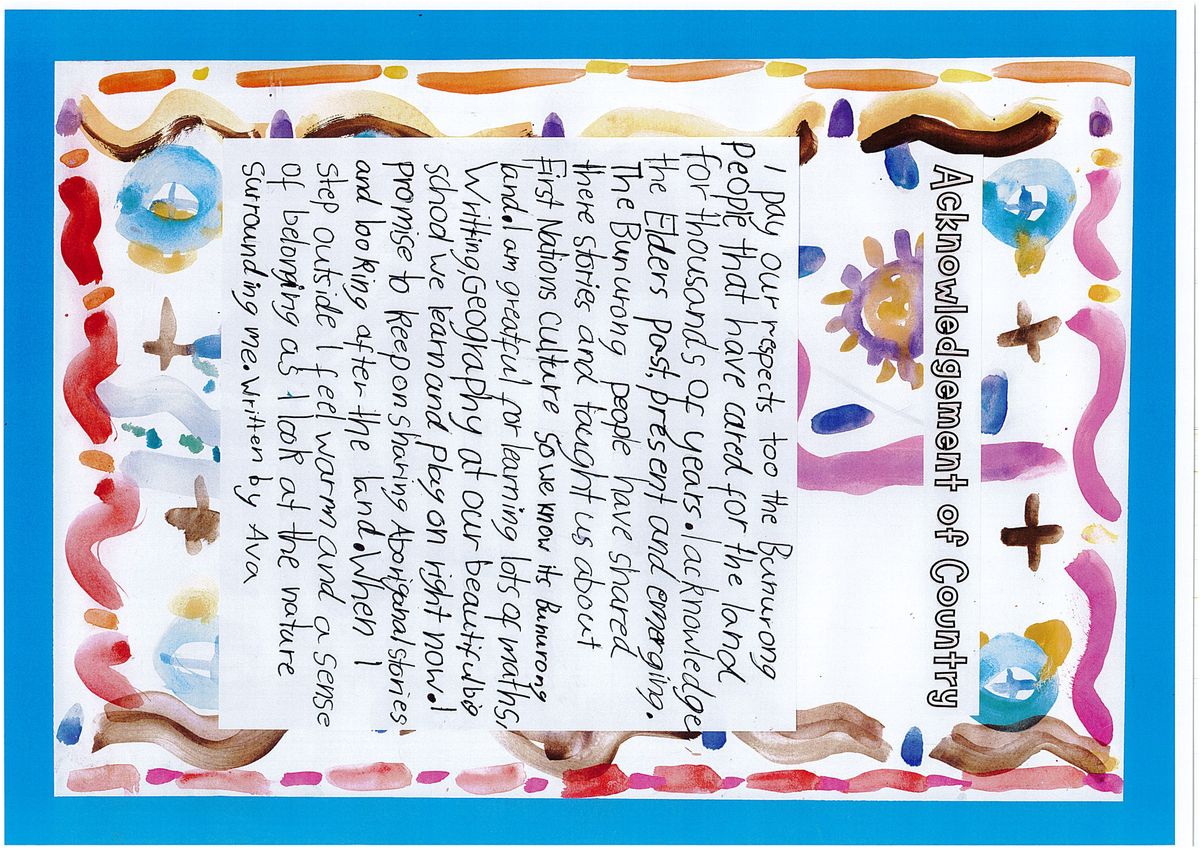 Acknowledgement of Country
I pay our respects too the Bunurong
people, that have cared for the land
for thousands of years. I acknowledge
the Elders past, present and emerging.
The Bunurong people have shared
there stories and tought us about
First Nations culture so we know its Bunurong
land. I am greatful for learning lots of maths,
Writting, Geography at our beautiful big
school we learn and play on right now. I
promise to keep on sharing Aboriganal stories
and looking after the land. When I
step outside I feel warm and a sense
of belonging as I look at the nature
surrounding me. Written by Ava